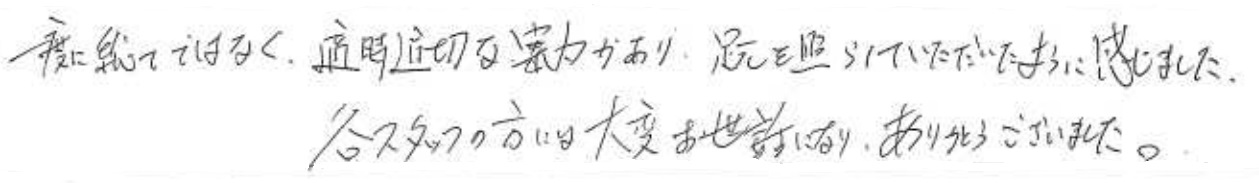 一度に総てではなく、適時適切な案内があり、足元を照らしていただいたように感じました。
各スタッフの方には大変お世話になり、ありがとうございました。